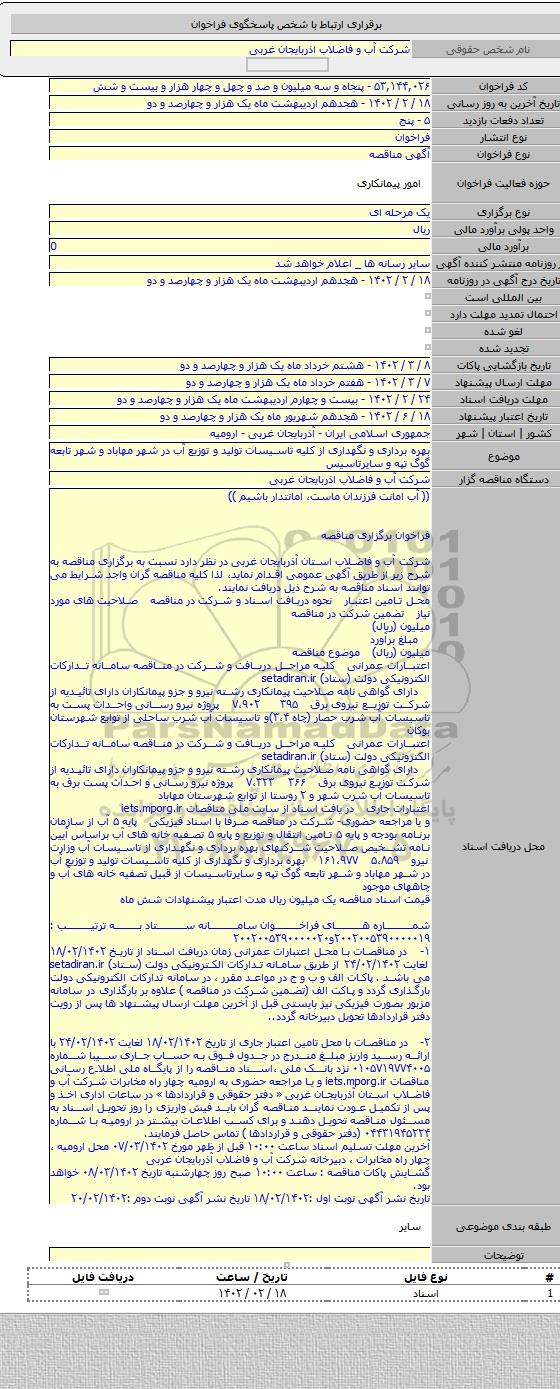 برقراری ارتباط با شخص پاسخگوی فراخوان
نام شخص حقوقی شرکت آب و فاضلاب اذربایجان غربی
کد فراخوان ۵۳,۱۴۴,۰۲۶ - پنجاه و سه میلیون و صد و چهل و چهار هزار و بیست و شش
تاریخ آخرین به روز رسانی ۱۸ / ۲ / ۱۴۰۲ - هجدهم اردیبهشت ماه یک هزار و چهارصد و دو
تعداد دفعات بازدید ۵ - پنج
نوع انتشار فراخوان
نوع فراخوان آگهی مناقصه
حوزه فعالیت فراخوان امور پیمانکاری
نوع برگزاری یک مرحله ای
واحد پولی برآورد مالی ریال
برآورد مالی 0
روزنامه منتشر کننده آگهی سایر رسانه ها _ اعلام خواهد شد
تاریخ درج آگهی در روزنامه ۱۸ / ۲ / ۱۴۰۲ - هجدهم اردیبهشت ماه یک هزار و چهارصد و دو
بین المللی است
احتمال تمدید مهلت دارد
لغو شده
تجدید شده
تاریخ بازگشایی پاکات ۸ / ۳ / ۱۴۰۲ - هشتم خرداد ماه یک هزار و چهارصد و دو
مهلت ارسال پیشنهاد ۷ / ۳ / ۱۴۰۲ - هفتم خرداد ماه یک هزار و چهارصد و دو
مهلت دریافت اسناد ۲۴ / ۲ / ۱۴۰۲ - بیست و چهارم اردیبهشت ماه یک هزار و چهارصد و دو
تاریخ اعتبار پیشنهاد ۱۸ / ۶ / ۱۴۰۲ - هجدهم شهریور ماه یک هزار و چهارصد و دو
کشور | استان | شهر جمهوری اسلامی ایران - آذربایجان غربی - ارومیه
موضوع بهره برداری و نگهداری از کلیه تاسیسات تولید و توزیع آب در شهر مهاباد و شهر تابعه
گوگ تپه و سایرتاسیس
دستگاه مناقصه گزار شرکت آب و فاضلاب اذربایجان غربی
محل دریافت اسناد
(( آب امانت فرزندان ماست، امانتدار باشیم ))
فراخوان برگزاری مناقصه
شرکت آب و فاضلاب استان آذربایجان غربی در نظر دارد نسبت به برگزاری مناقصه به
شرح زیر از طریق آگهی عمومی اقدام نماید، لذا کلیه مناقصه گران واجد شرایط می
توانند اسناد مناقصه به شرح ذیل دریافت نمایند.
محل تامین اعتبار نحوه دریافت اسناد و شرکت در مناقصه صلاحیت های مورد
نیاز تضمین شرکت در مناقصه
میلیون (ریال)
مبلغ برآورد
میلیون (ریال) موضوع مناقصه
اعتبارات عمرانی کلیه مراحل دریافت و شرکت در مناقصه سامانه تدارکات
الکترونیکی دولت (ستاد) setadiran.ir
دارای گواهی نامه صلاحیت پیمانکاری رشته نیرو و جزو پیمانکاران دارای تائیدیه از
شرکت توزیع نیروی برق ۳۹۵ ۷،۹۰۲ پروژه نیرو رسانی واحداث پست به
تاسیسات آب شرب حصار (چاه ۳،۴)و تاسیسات آب شرب ساحلی از توابع شهرستان
بوکان
اعتبارات عمرانی کلیه مراحل دریافت و شرکت در مناقصه سامانه تدارکات
الکترونیکی دولت (ستاد) setadiran.ir
دارای گواهی نامه صلاحیت پیمانکاری رشته نیرو و جزو پیمانکاران دارای تائیدیه از
شرکت توزیع نیروی برق ۳۶۶ ۷،۳۲۳ پروژه نیرو رسانی و احداث پست برق به
تاسیسات آب شرب شهر و ۲ روستا از توابع شهرستان مهاباد
اعتبارات جاری دریافت اسناد از سایت ملی مناقصات iets.mporg.ir
و یا مراجعه حضوری- شرکت در مناقصه صرفا با اسناد فیزیکی پایه ۵ آب از سازمان
برنامه بودجه و پایه ۵ تامین انتقال و توزیع و پایه ۵ تصفیه خانه های آب براساس آیین
نامه تشخیص صلاحیت شرکتهای بهره برداری و نگهداری از تاسیسات آب وزارت
نیرو ۵،۸۵۹ ۱۶۱،۹۷۷ بهره برداری و نگهداری از کلیه تاسیسات تولید و توزیع آب
در شهر مهاباد و شهر تابعه گوگ تپه و سایرتاسیسات از قبیل تصفیه خانه های آب و
چاههای موجود
قیمت اسناد مناقصه یک میلیون ریال مدت اعتبار پیشنهادات شش ماه
شماره های فراخوان سامانه ستاد به ترتیب :
۲۰۰۲۰۰۵۳۹۰۰۰۰۰۱۹و۲۰۰۲۰۰۵۳۹۰۰۰۰۰۲۰
۱- در مناقصات با محل اعتبارات عمرانی زمان دریافت اسناد از تاریخ ۱۸/۰۲/۱۴۰۲
لغایت ۲۴/۰۲/۱۴۰۲ از طریق سامانه تدارکات الکترونیکی دولت (ستاد) setadiran.ir
می باشد ، پاکات الف و ب و ج در مواعد مقرر ، در سامانه تدارکات الکترونیکی دولت
بارگذاری گردد و پاکت الف (تضمین شرکت در مناقصه ) علاوه بر بارگذاری در سامانه
مزبور بصورت فیزیکی نیز بایستی قبل از آخرین مهلت ارسال پیشنهاد ها پس از رویت
دفتر قراردادها تحویل دبیرخانه گردد..
۲- در مناقصات با محل تامین اعتبار جاری از تاریخ ۱۸/۰۲/۱۴۰۲ لغایت ۲۴/۰۲/۱۴۰۲ با
ارائه رسید واریز مبلغ مندرج در جدول فوق به حساب جاری سیبا شماره
۰۱۰۵۷۱۹۷۷۴۰۰۵ نزد بانک ملی ،اسناد مناقصه را از پایگاه ملی اطلاع رسانی
مناقصات iets.mporg.ir و یا مراجعه حضوری به ارومیه چهار راه مخابرات شرکت آب و
فاضلاب استان آذربایجان غربی « دفتر حقوقی و قراردادها » در ساعات اداری اخذ و
پس از تکمیل عودت نمایند مناقصه گران باید فیش واریزی را روز تحویل اسناد به
مسئول مناقصه تحویل دهند و برای کسب اطلاعات بیشتر در ارومیه با شماره
۰۴۴۳۱۹۴۵۲۲۴ (دفتر حقوقی و قراردادها ) تماس حاصل فرمایند.
آخرین مهلت تسلیم اسناد ساعت ۱۰:۰۰ قبل از ظهر مورخ ۰۷/۰۳/۱۴۰۲ محل ارومیه ،
چهار راه مخابرات ، دبیرخانه شرکت آب و فاضلاب آذربایجان غربی
گشایش پاکات مناقصه : ساعت ۱۰:۰۰ صبح روز چهارشنبه تاریخ ۰۸/۰۳/۱۴۰۲ خواهد
بود.
تاریخ نشر آگهی نوبت اول :۱۸/۰۲/۱۴۰۲ تاریخ نشر آگهی نوبت دوم :۲۰/۰۲/۱۴۰۲
طبقه بندی موضوعی سایر
توضیحات
# نوع فایل تاریخ / ساعت دریافت فایل
1 اسناد ۱۸ / ۰۲ / ۱۴۰۲
ParsNamadData